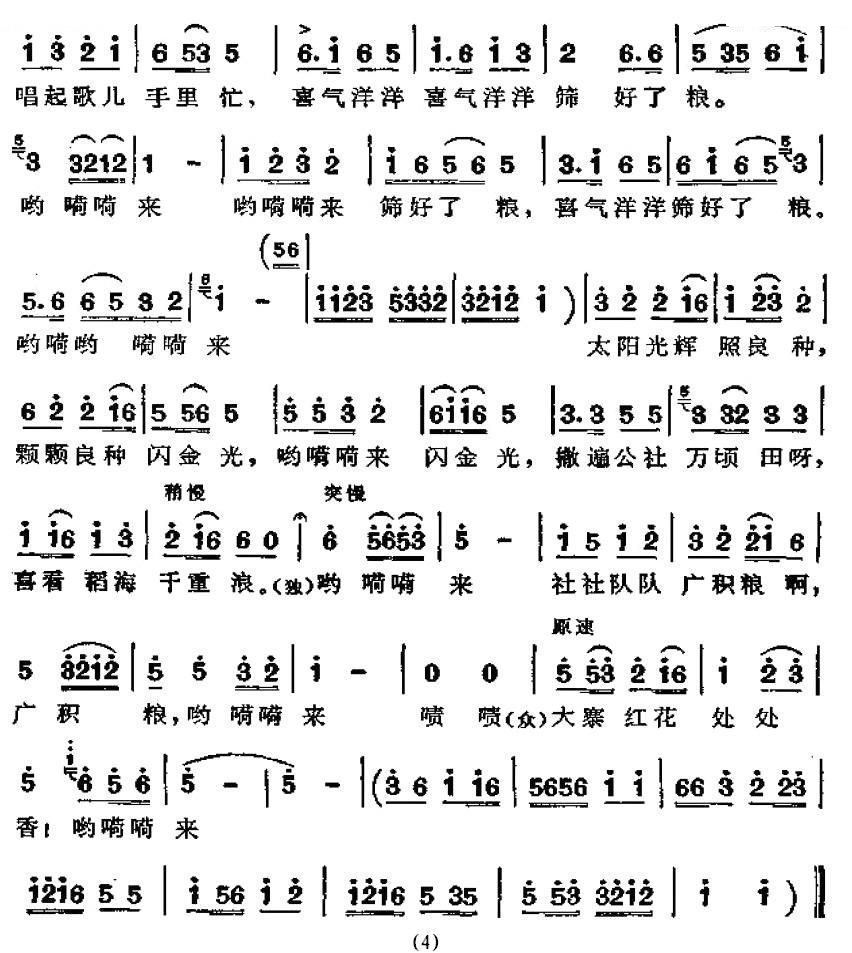 1 3 2 1 | 6 53 5 | 6. 1 6 5 | 1. 6 1 3 | 2 6. 6 | 5 35 6 1 |
唱起歌儿 手里 忙， 喜气洋洋 喜气洋洋 筛 好了 粮。
5 3 3212 | 1 - | 1 2 3 2 | 1 6 5 6 5 | 3. 1 6 5 | 6 1 6 5 5 3 |
哟 嗬嗬 来 哟嗬嗬来 筛好了 粮， 喜气洋洋筛好了 粮。
( 56 |
5. 6 6 5 3 2 | 6 1 - | 1123 5332 | 3212 1 ) | 3 2 2 16 | 1 23 2 |
哟嗬哟 嗬嗬 来 太阳光辉 照良 种，
6 2 2 16 | 5 56 5 | 5 5 3 2 | 6116 5 | 3. 3 5 5 | 5 3 32 3 3 |
颗颗良种 闪金 光， 哟嗬嗬来 闪金光， 撒遍公社 万顷 田呀，
稍慢 突慢
1 16 1 3 | 2 16 6 0 | 6 5653 | 5 - | 1 5 1 2 | 3 2 21 6 |
喜看 稻海 千重 浪。（独）哟 嗬嗬 来 社社队队 广积粮 啊，
原速
5 3212 | 5 5 3 2 | 1 - | 0 0 | 5 53 2 16 | 1 2 3 |
广 积 粮，哟 嗬嗬 来 啧 啧（众）大寨 红花 处 处
5 1 6 5 6 | 5 - | 5 - | ( 3 6 1 16 | 5656 1 1 | 66 3 2 23 |
香！ 哟嗬嗬 来
1216 5 5 | 1 56 1 2 | 1216 5 35 | 5 53 3212 | 1 1 ) ||
(4)